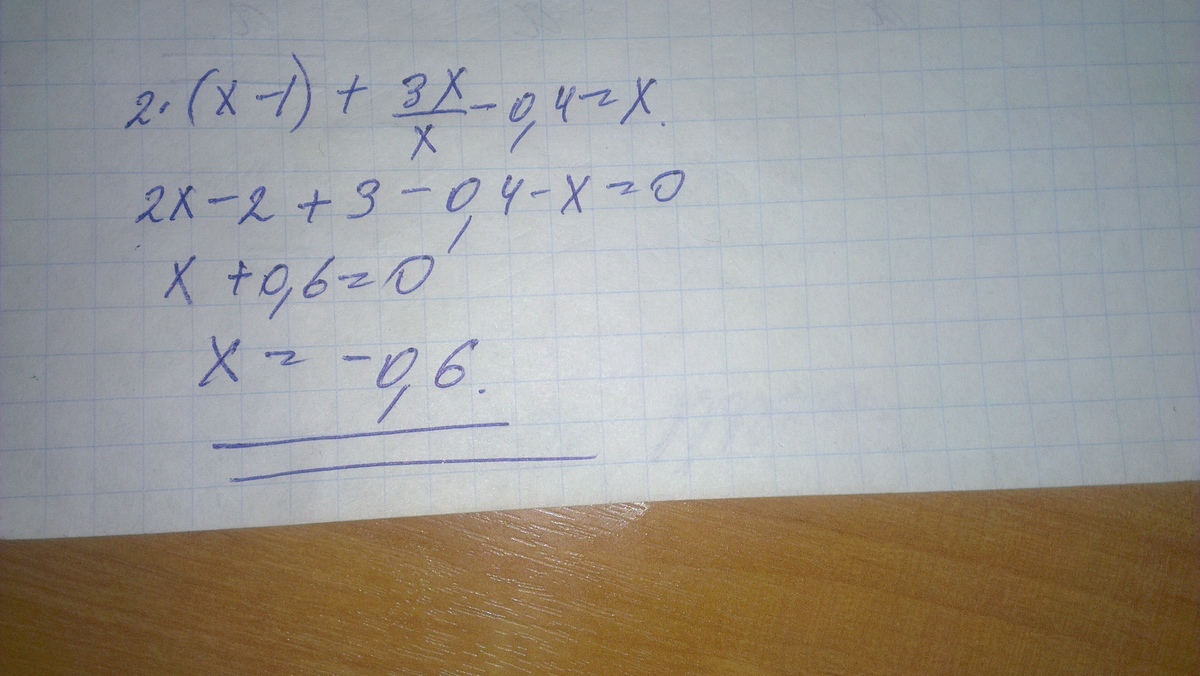 2·(x-1) + 3x/x - 0,4 = x.
2x - 2 + 3 - 0,4 - x = 0
x + 0,6 = 0
x = -0,6.